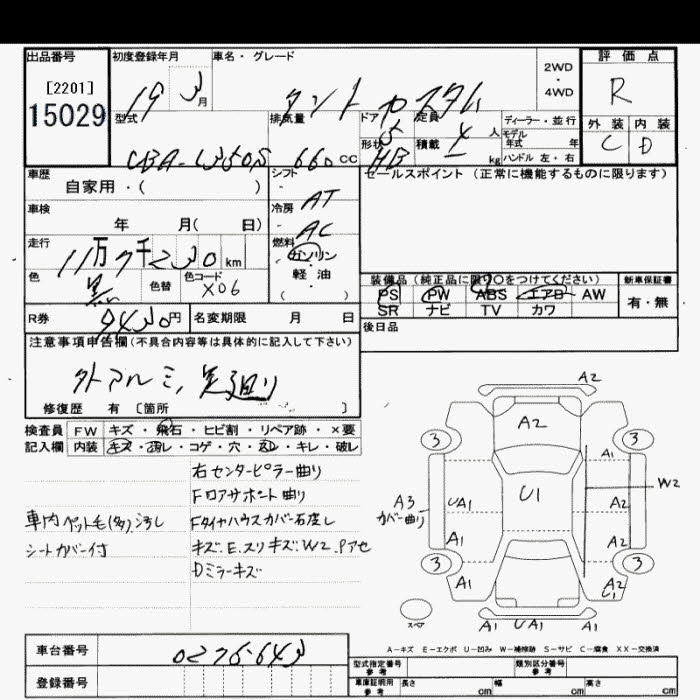 出品番号 初度登録年月 車名・グレード 評価点
[2201]
15029
19 3月 タント カスタム
2WD
・
4WD
R
型式 排気量 ドア 定員 ディーラー・並行 外装 内装
形状 積載 モデル
年式 年
CBA-L350S 660cc 5 4人 C D
HB kg ハンドル 左・右
車歴 シフト セールスポイント (正常に機能するものに限ります)
自家用・( ) AT
車検 冷房
年 月( 日) AC
走行 燃料
11万7千230km ガソリン
色 色替 色コード 軽・油
黒 X06 ( ・ )
装備品 (純正品に限り○をつけてください) 新車保証書
PS PW ABS エアB AW 有・無
SR ナビ TV カワ
R券 9430円 名変期限 月 日
後日品
注意事項申告欄(不具合内容等は具体的に記入して下さい)
外アルミ,
修復歴 有 [箇所 ]
検査員 FW キズ・飛石・ヒビ割・リペア跡・×要
記入欄 内装 キズ・汚レ・コゲ・穴・・キレ・破レ
右センターピラー曲り
Fロアサポート曲り
車内ペット毛(多)汚レ Fタイヤハウスカバー右戻し
シートカバー付 キズ.E.スリキズ.W2.Pアセ
Dミラーキズ
A2
A2
3 3
A1
W2
A3 UA1 U1 A2
カバー曲り
A1 A2
3 3
A1 A2
U1
スペア A1 UA1 A1
A-キズ E-エクボ U-凹み W-補修跡 S-サビ C-腐食 XX-交換済
車台番号 0276643
型式指定番号 類別区分番号
参考 参考
登録番号
車庫証明用 長さ 幅 高さ
参考 cm cm cm